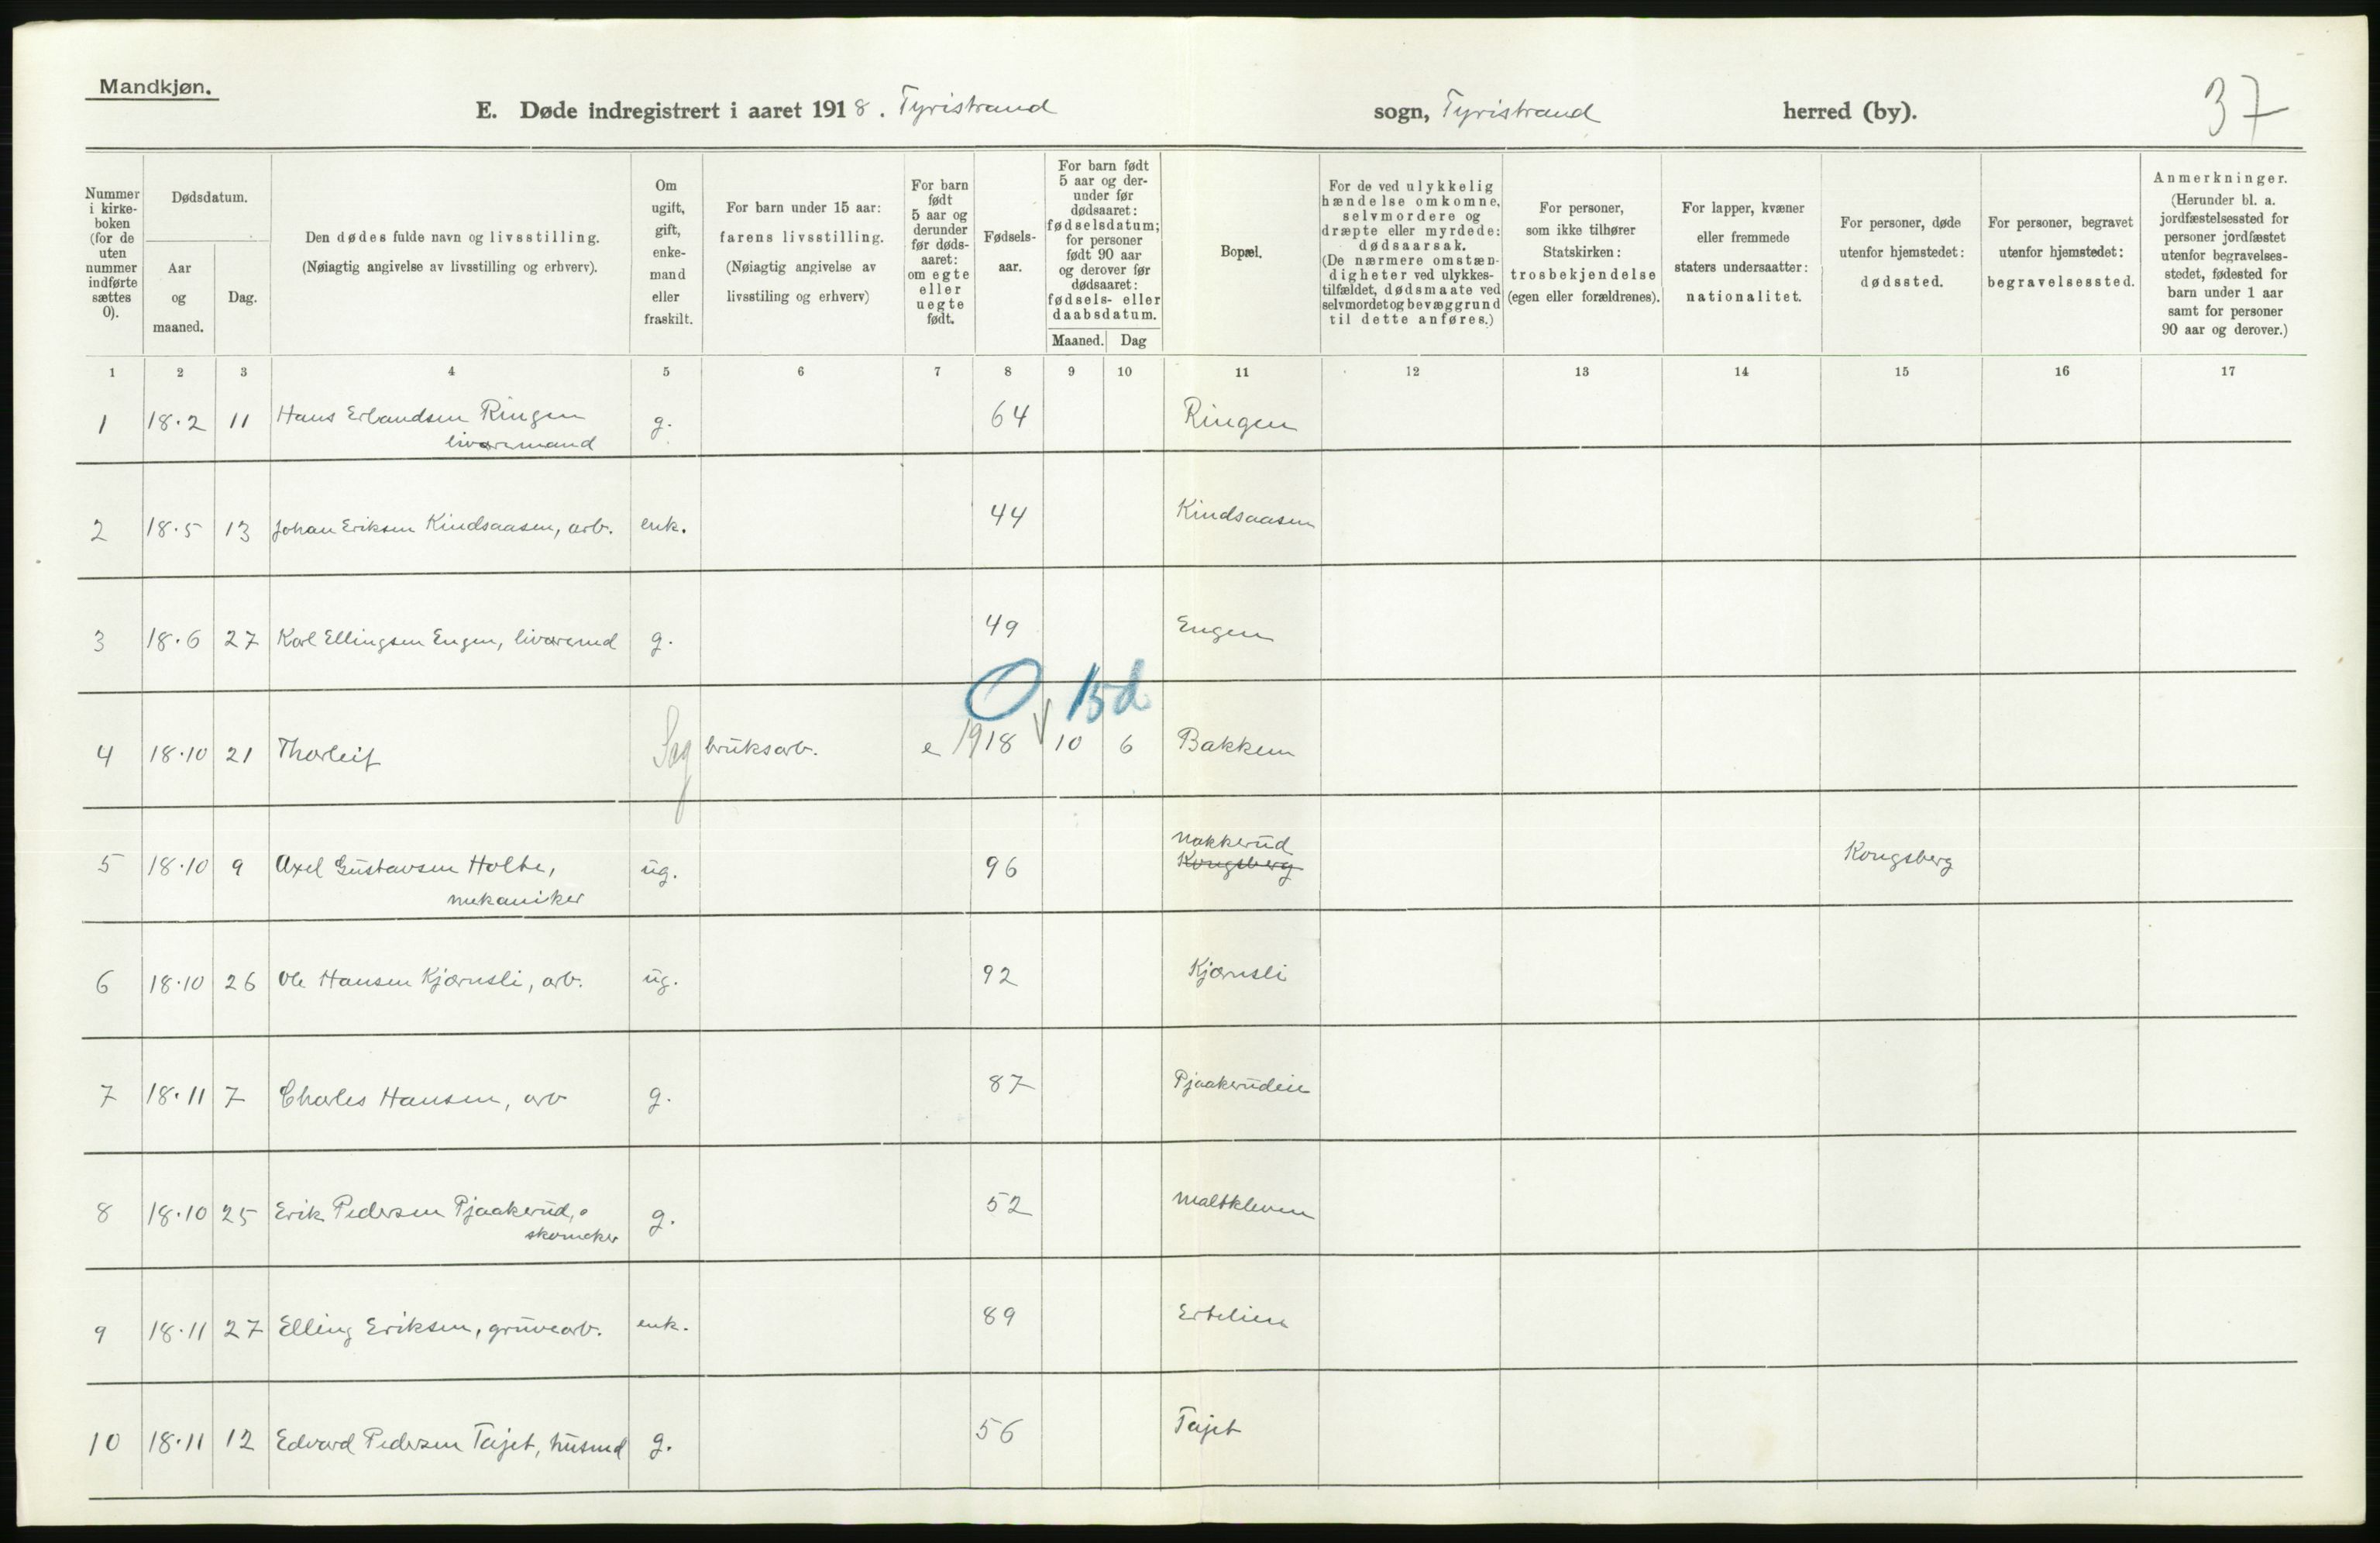 Mandkjøn.
E. Døde indregistrert i aaret 1918. Tyristrand sogn, Tyristrand herred (by). 37
Nummer i kirke-boken (for de uten nummer indførte sættes 0).
Dødsdatum.
Aar og maaned.
Dag.
Den dødes fulde navn og livsstilling.
(Nøiagtig angivelse av livsstilling og erhverv).
Om ugift, gift, enke-mand eller fraskilt.
For barn under 15 aar:
farens livsstilling.
(Nøiagtig angivelse av
livsstiling og erhverv)
For barn født 5 aar og derunder før døds-aaret: om egte eller uegte født.
Fødsels-aar.
For barn født 5 aar og der-under før dødsaaret: fødselsdatum; for personer født 90 aar og derover før dødsaaret: fødsels- eller daabsdatum.
Maaned. Dag
Bopæl.
For de ved ulykkelig hændelse omkomne, selvmordere og dræpte eller myrdede: dødsaarsak. (De nærmere omstæn-digheter ved ulykkes-tilfældet, dødsmaate ved selvmordet og bevæggrund til dette anføres.)
For personer, som ikke tilhører Statskirken: trosbekjendelse (egen eller forældrenes).
For lapper, kvæner eller fremmede staters undersaatter: nationalitet.
For personer, døde utenfor hjemstedet: dødssted.
For personer, begravet utenfor hjemstedet: begravelsessted.
Anmerkninger. (Herunder bl. a. jordfæstelsessted for personer jordfæstet utenfor begravelses-stedet, fødested for barn under 1 aar samt for personer 90 aar og derover.)
1 2 3 4 5 6 7 8 9 10 11 12 13 14 15 16 17
1 18.2 11 Hans Erlandsen Ringen g. 64 Ringen
livøremand
2 18.5 13 Johan Eriksen Kindsaasen, arb. enk. 44 Kindsaasen
3 18.6 27 Karl Ellingsen Engen, livøremd g. 49 Engen
0 15 d
4 18.10 21 Thorleif Sag bruksarb. e 1918 10 6 Bakken
Nakkerud
5 18.10 9 Axel Gustavsen Holte, ug. 96 Kongsberg Kongsberg
mekaniker
6 18.10 26 Ole Hansen Kjærnsli, arb. ug. 92 Kjærnsli
7 18.11 7 Charles Hansen, arb g. 87 Pjaakerudeie
8 18.10 25 Erik Pedersen Pjaakerud, g. 52 Maltkleven
skomaker
9 18.11 27 Elling Eriksen, gruvearb. enk. 89 Ertelien
10 18.11 12 Edvard Pedersen Tajet, husmd g. 56 Tajet